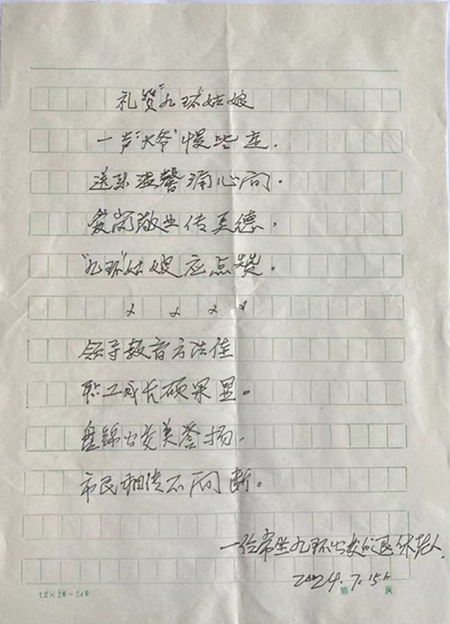 礼赞"九环"姑娘
一声"大爷"慢些走.
送来温馨涌心间.
爱岗敬业传美德.
"九环"姑娘应点赞。
x x x x
领导教育方法佳
职工成长硕果显。
盘锦出
美誉扬.
市民相传不间断。
一位常坐九环出
的退休老人.
2024.7.15
12×20=240
第 页